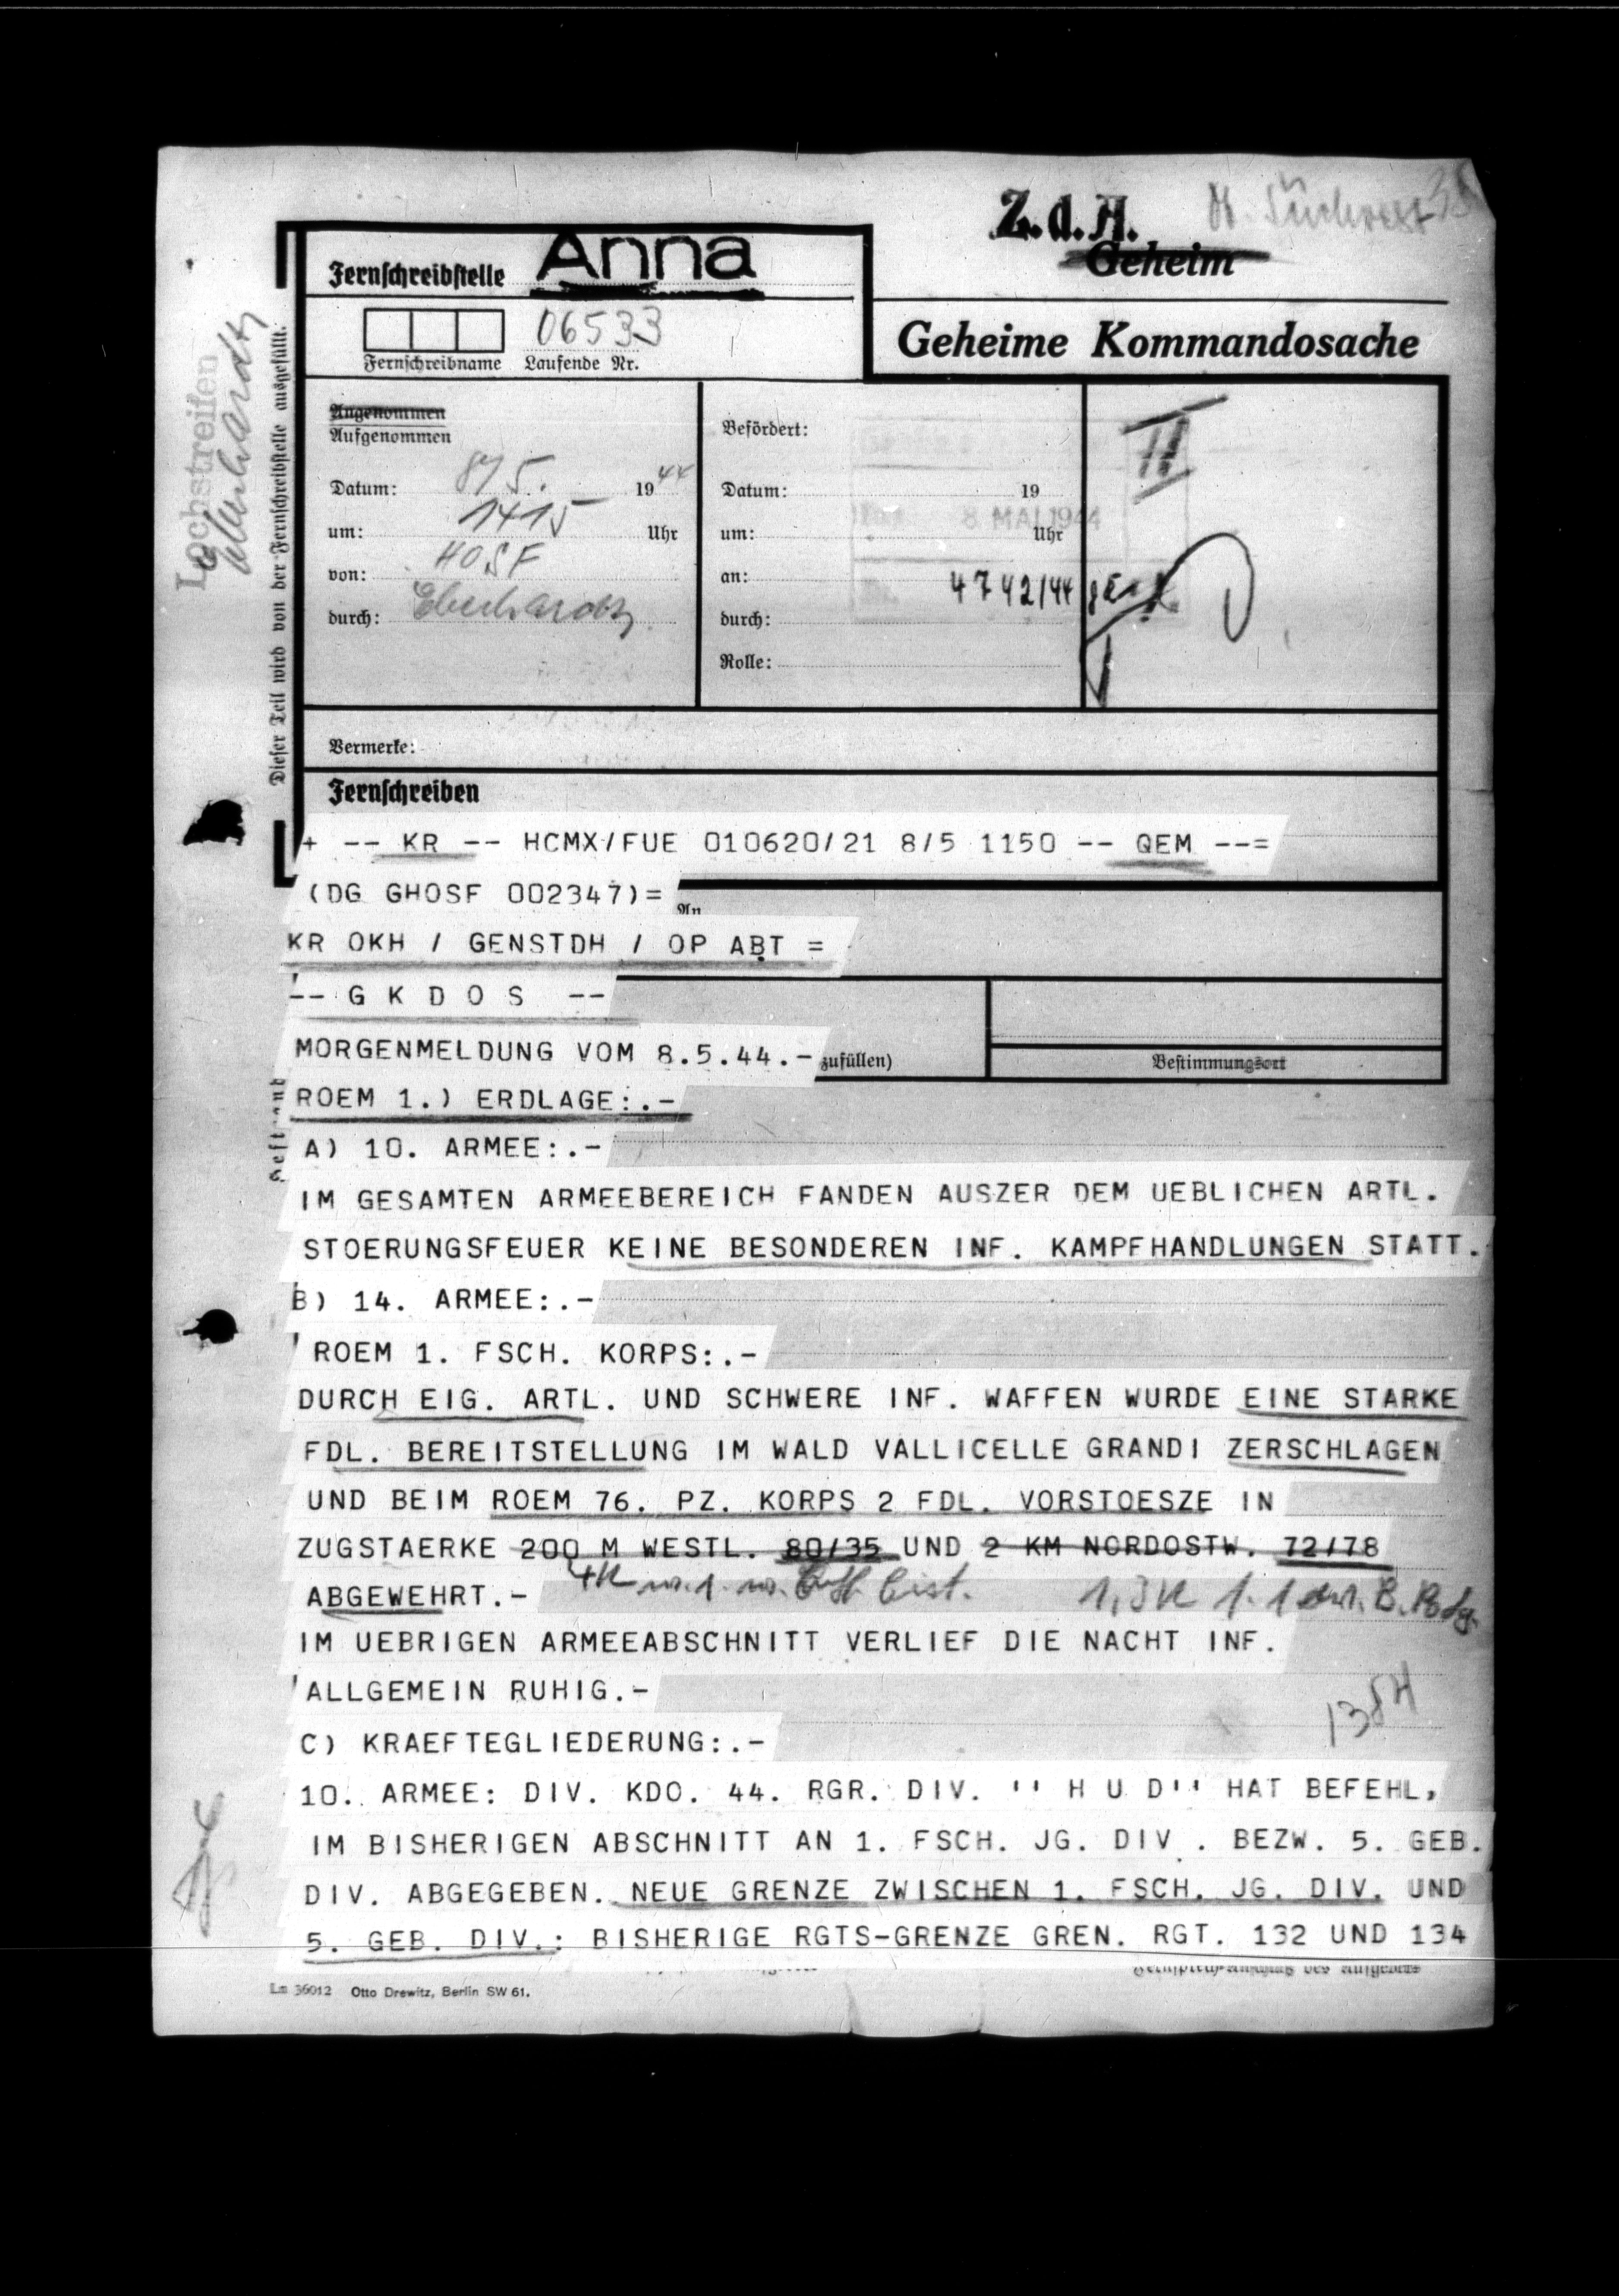 Z.d.A.
Geheim
Fernschreibstelle Anna
Geheime Kommandosache
06533
Fernschreibname Laufende Nr.
Lochstreifen
Eberhardt
Dieser Teil wird von der Fernschreibstelle ausgefüllt.
Angenommen
Aufgenommen
Datum: 8/5. 1944
um: 1415 Uhr
von: HOSF
durch: Eberhardt
Befördert:
Datum: 19
8. MAI 1944
um: Uhr
an: 4742/44
durch:
Rolle:
II
Vermerke:
Fernschreiben
+ -- KR -- HCMX/FUE 010620/21 8/5 1150 -- QEM --=
(DG GHOSF 002347)=
An
KR OKH / GENSTDH / OP ABT =
-- G K D O S --
MORGENMELDUNG VOM 8.5.44.-
zufüllen)
Bestimmungsort
ROEM 1.) ERDLAGE:.-
A) 10. ARMEE:.-
IM GESAMTEN ARMEEBEREICH FANDEN AUSZER DEM UEBLICHEN ARTL.
STOERUNGSFEUER KEINE BESONDEREN INF. KAMPFHANDLUNGEN STATT.
B) 14. ARMEE:.-
ROEM 1. FSCH. KORPS:.-
DURCH EIG. ARTL. UND SCHWERE INF. WAFFEN WURDE EINE STARKE
FDL. BEREITSTELLUNG IM WALD VALLICELLE GRANDI ZERSCHLAGEN
UND BEIM ROEM 76. PZ. KORPS 2 FDL. VORSTOESZE IN
ZUGSTAERKE 200 M WESTL. 80/35 UND 2 KM NORDOSTW. 72/78
ABGEWEHRT.-
IM UEBRIGEN ARMEEABSCHNITT VERLIEF DIE NACHT INF.
ALLGEMEIN RUHIG.-
C) KRAEFTEGLIEDERUNG:.-
10. ARMEE: DIV. KDO. 44. RGR. DIV. '' H U D'' HAT BEFEHL,
IM BISHERIGEN ABSCHNITT AN 1. FSCH. JG. DIV . BEZW. 5. GEB.
DIV. ABGEGEBEN. NEUE GRENZE ZWISCHEN 1. FSCH. JG. DIV. UND
5. GEB. DIV.: BISHERIGE RGTS-GRENZE GREN. RGT. 132 UND 134
Lm 36012 Otto Drewitz, Berlin SW 61.